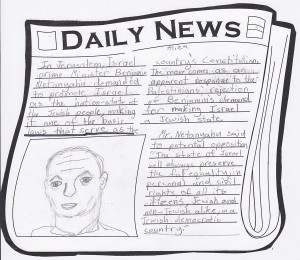 DAILY NEWS
In Jerusalem, Israel
prime Minister Benjamin
Netanyahu demanded
to enforce Israel
as the nation-state of
the Jewish people, making
it one of the basic
laws that serve as the
country's Constitution.
The move comes as an
apparent response to the
Palestinians' rejection
of Benjamins demand
for making Israel
a Jewish state.
Mr. Netanyahu said
to potential opposition
"The state of Israel
will always preserve
the full equality, in
personal and civil
rights of all its
citizens, Jewish and
non-Jewish alike, in a
Jewish democratic
country."